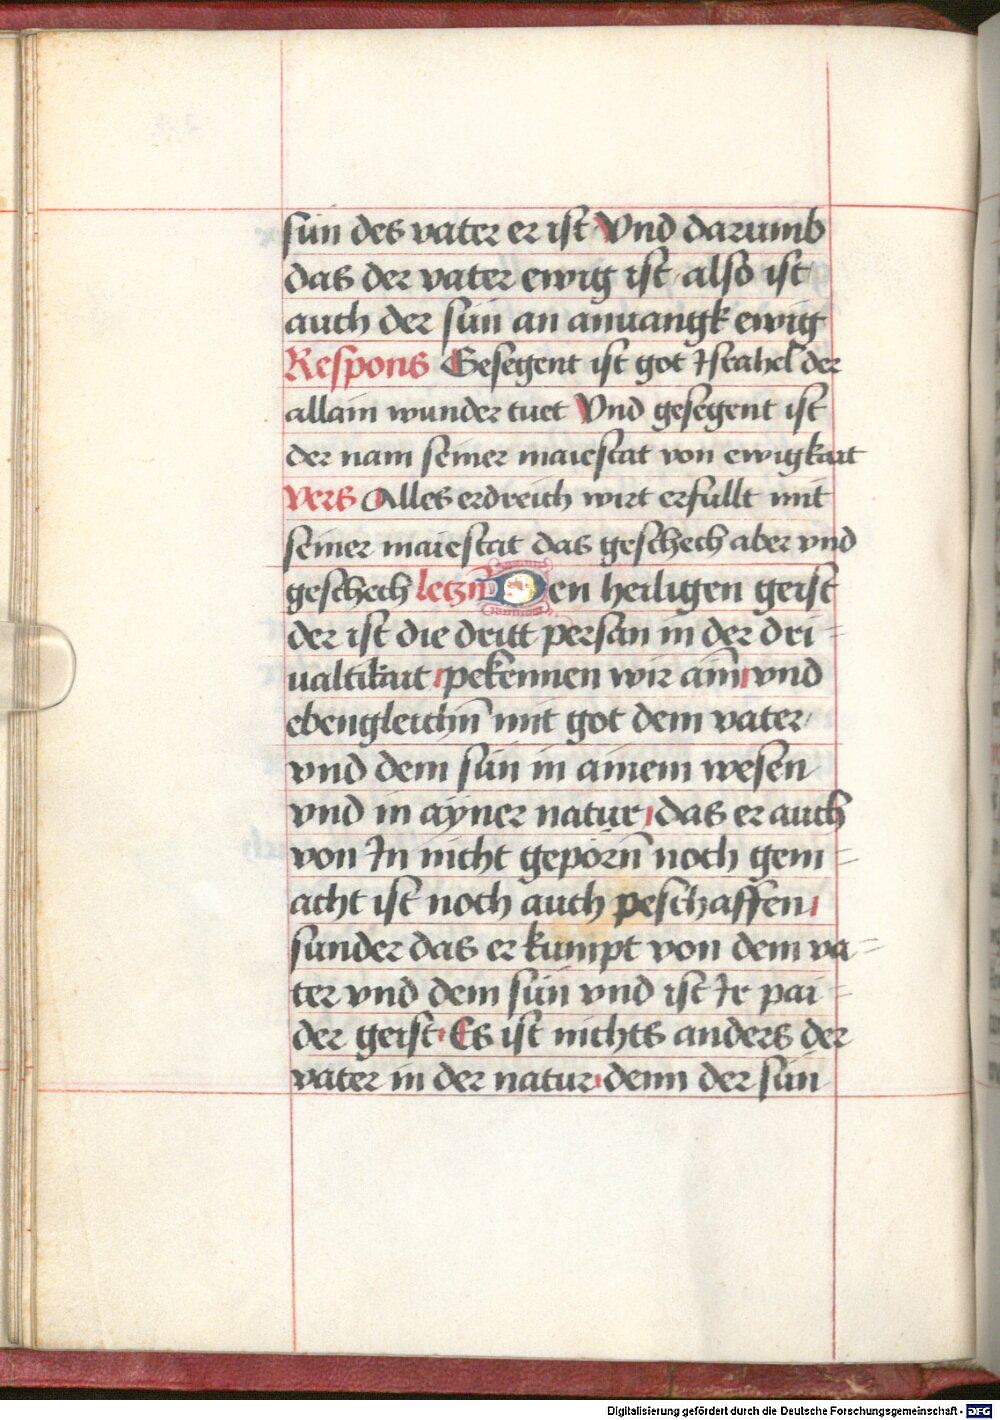 sün des vater er ist Vnd darumb
das der vater ewig ist / also ist
auch der sün an anuangk ewig
Respons Gesegent ist got Israhel der
allain wunder tuet Vnd gesegent ist
der nam seiner maiestat von ewigkait
vers Alles erdreich wirt erfüllt mit
seiner maiestat das geschech aber vnd
geschech letzin̄ Den heiligen geist
der ist die dritt person in der dri=
ualtikait pekennen wir aim̄ vnd
ebengleichn̄ mit got dem vater/
vnd dem sün in ainem wesen
vnd in ayner natur das er auch
von In nicht geporn̄ noch gem=
acht ist noch auch peschaffen
sunder das er kumpt von dem va=
ter vnd dem sün vnd ist Ir pai=
der geist Es ist nichts anders der
vater in der natur denn der sün
Digitalisierung gefördert durch die Deutsche Forschungsgemeinschaft - DFG